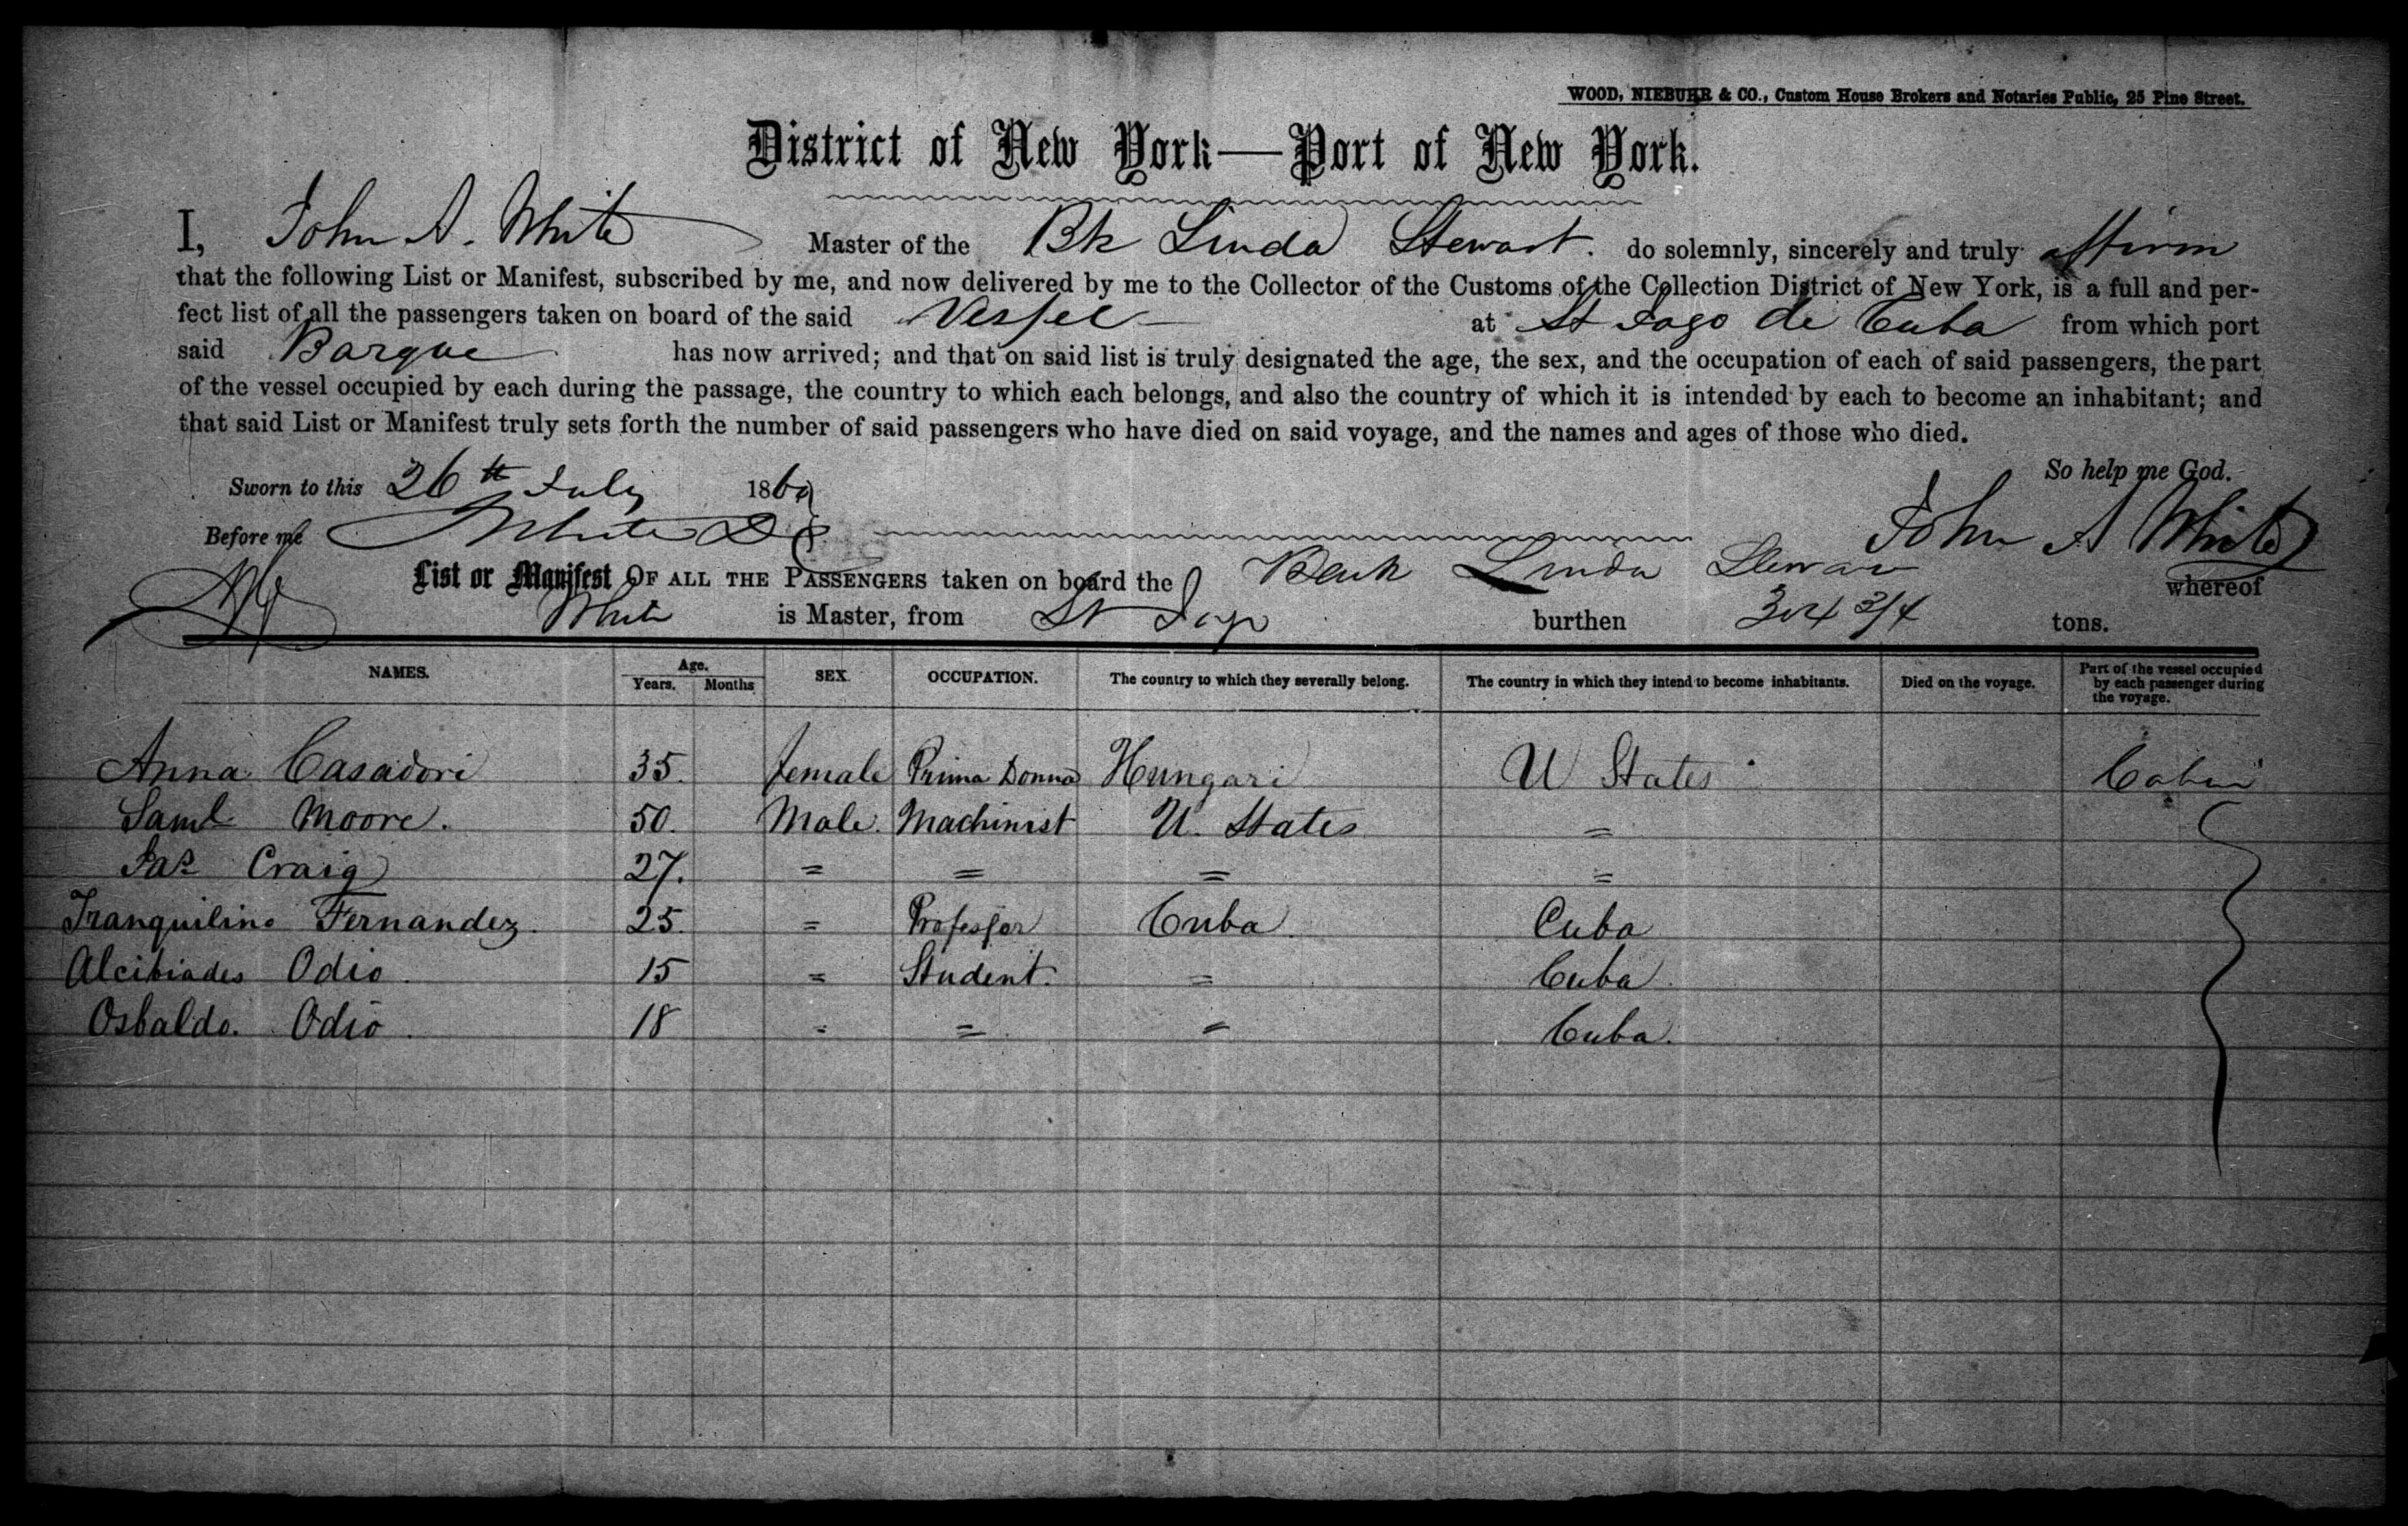 WOOD, NIEBUHR & CO., Custom House Brokers and Notaries Public, 25 Pine Street.
District of New York—Port of New York.
I, John A. White Master of the Bk Linda Stewart. do solemnly, sincerely and truly affirm
that the following List or Manifest, subscribed by me, and now delivered by me to the Collector of the Customs of the Collection District of New York, is a full and per-
fect list of all the passengers taken on board of the said Vessel at St Jago de Cuba from which port
said Barque has now arrived; and that on said list is truly designated the age, the sex, and the occupation of each of said passengers, the part
of the vessel occupied by each during the passage, the country to which each belongs, and also the country of which it is intended by each to become an inhabitant; and
that said List or Manifest truly sets forth the number of said passengers who have died on said voyage, and the names and ages of those who died.
So help me God.
Sworn to this 26th July 186
Before me John A White
List or Manifest OF ALL THE PASSENGERS taken on board the Bark Linda Stewart whereof
White is Master, from St Jago burthen tons.
NAMES. Age. Years. Months SEX. OCCUPATION. The country to which they severally belong. The country in which they intend to become inhabitants. Died on the voyage. Part of the vessel occupied by each passenger during the voyage.
Anna Casadori 35. female Prima Donna Hungari U States Cabin
Saml Moore. 50. Male. Machinist U. States =
Jas Craig 27. = = = =
Tranquilino Fernandez. 25. = Professor Cuba Cuba
Alcibiades Odio. 15 = Student. = Cuba.
Osbaldo. Odio. 18 = = = Cuba.